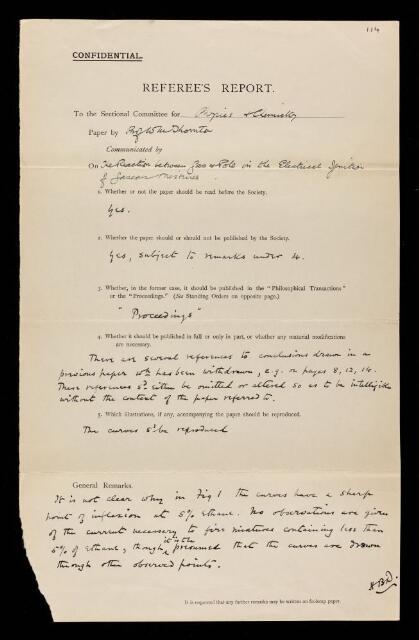 114
CONFIDENTIAL.
REFEREE'S REPORT.
To the Sectional Committee for Physics & Chemistry
Paper by Prof W M Thornton
Communicated by
On The Reaction between Gas & Pole in the Electrical Ignition
of Gaseous Mixtures
1. Whether or not the paper should be read before the Society.
Yes.
2. Whether the paper should or should not be published by the Society.
Yes, subject to remarks under 4.
3. Whether, in the former case, it should be published in the "Philosophical Transactions"
or the "Proceedings." (See Standing Orders on opposite page.)
"Proceedings"
4. Whether it should be published in full or only in part, or whether any material modifications
are necessary.
There are several references to conclusions drawn in a
previous paper wh has been withdrawn, e.g. on pages 8, 12, 14.
These references sd either be omitted or altered so as to be intelligible
without the context of the paper referred to.
5. Which illustrations, if any, accompanying the paper should be reproduced.
The curves sd be reproduced
General Remarks.
It is not clear why in Fig 1 the curves have a sharp
point of inflexion at 5% Ethane. No observations are given
of the current necessary to fire mixtures containing less than
5% of Ethane, though it is to be presumed that the curves are drawn
through other observed points.
HBD.
It is requested that any further remarks may be written on foolscap paper.